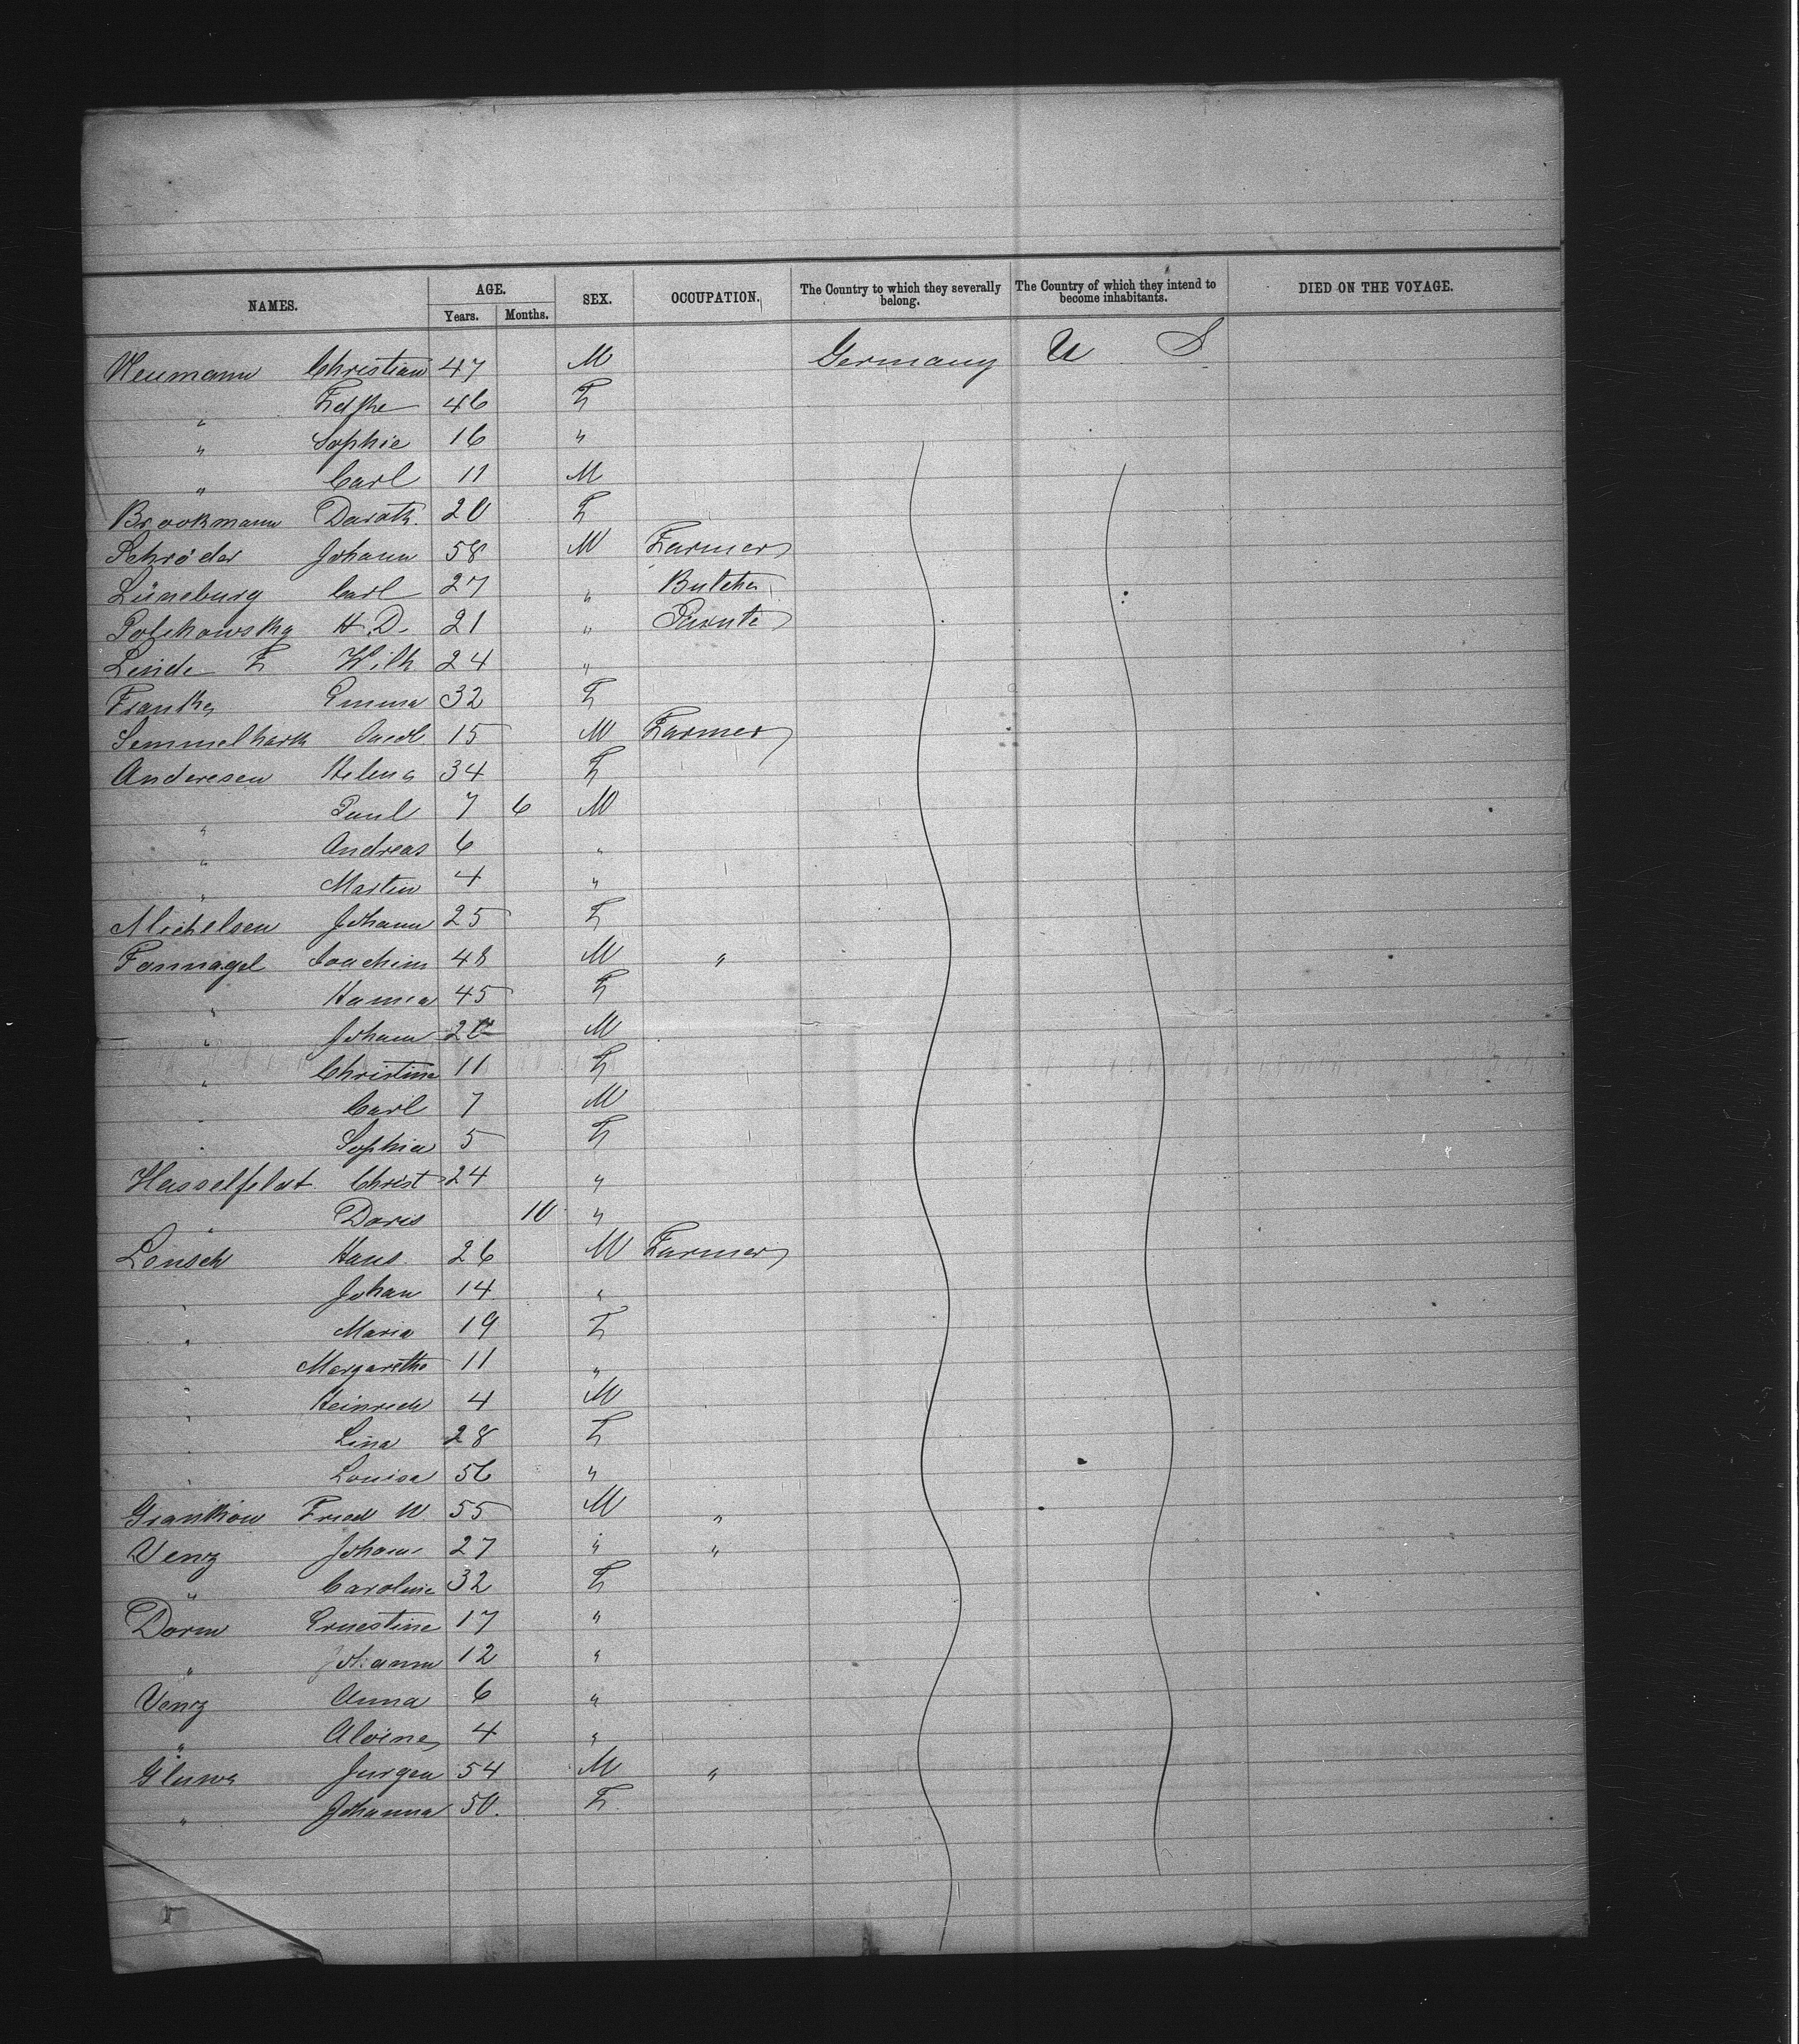 NAMES. AGE. SEX. OCCUPATION. The Country to which they severally belong. The Country of which they intend to become inhabitants. DIED ON THE VOYAGE.
Years. Months.
Neumann Christian 47 M Germany U S
" 46 F
" Sophie 16 "
" Carl 11 M
Brookmann Doroth. 20 F
Schröder Johann 58 M Farmer
Lüneburg Carl 27 " Butcher
H. D. 21 "
Linde F Wilh 24 "
Franke Emma 32 F
15 M Farmer
Anderesen Helena 34 F
" Paul 7 6 M
" Andreas 6 "
" Martin 4 "
Michelsen Johann 25 F
Fonnagel Joachim 48 M "
" Hanna 45 F
" Johann M
" Christine 11 F
Carl 7 M
" Sophia 5 F
Hasselfeldt Christ 24 "
" Doris 10 "
Lensch Hans 26 M Farmer
" Johan 14 "
" Maria 19 F
" Margaretha 11 "
" Heinrich 4 M
" Lina 28 F
" Louisa 56 "
Grankow Fried W. 55 M "
Venz Johann 27 " "
" Caroline 32 F
Dorm Ernestine 17 "
" Johann 12 "
Venz Anna 6 "
" Alvine 4 "
Jurgen 54 M "
" Johanna 50. F.